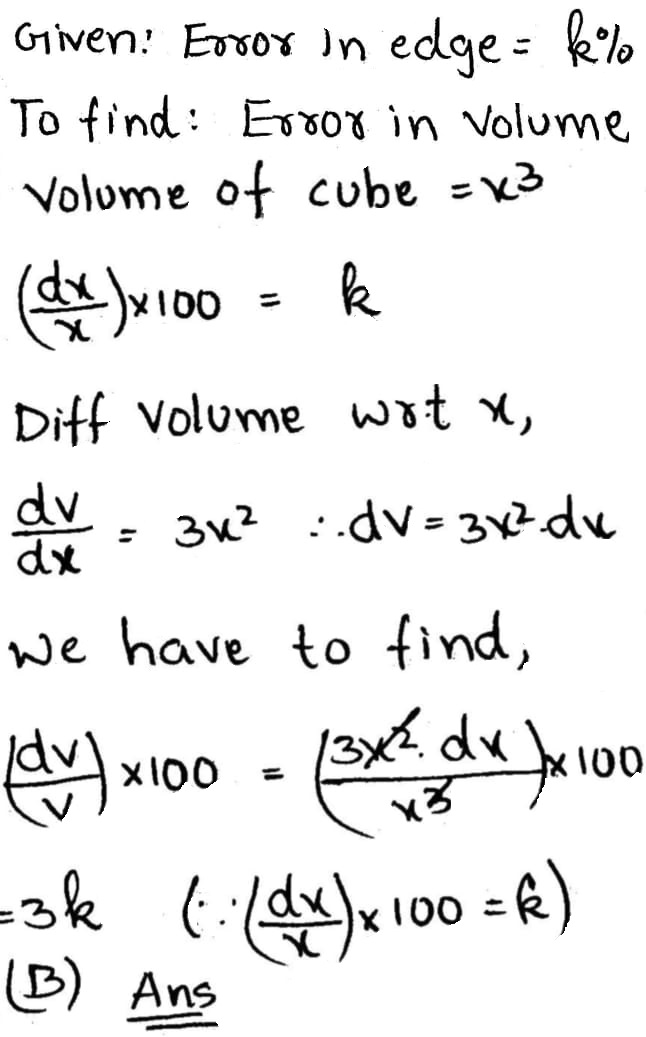 Given: Error in edge = k%
To find: Error in Volume
Volume of cube = x³
(dx/x)×100 = k
Diff Volume wrt x,
dv/dx = 3x² ∴ dv = 3x².dx
We have to find,
(dv/v)×100 = (3x².dx/x³)×100
=3k (∵(dx/x)×100 = k)
(B) Ans